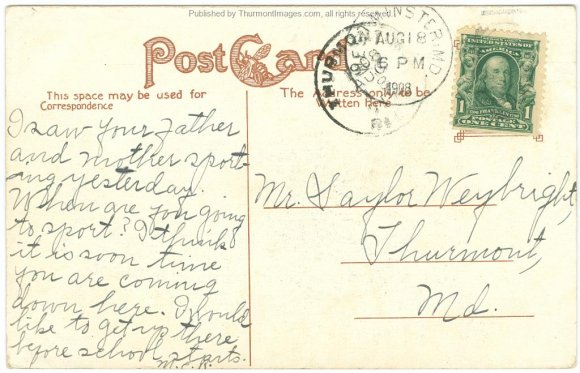 Published by ThurmontImages.com, all rights reserved.
Post Card
This space may be used for
Correspondence
The Address only to be
written here
WESTMINSTER, MD.
AUG 18
6 PM
1908
THURMO
UNITED STATES OF
AMERICA
1 FRANKLIN 1
POSTAGE
ONE CENT
I saw your father
and mother sport-
ing yesterday.
When are you going
to sport? I think
it is soon time
you are coming
down here. I would
like to get up there
before school starts.
Mr. Saylor Weybright,
Thurmont,
Md.